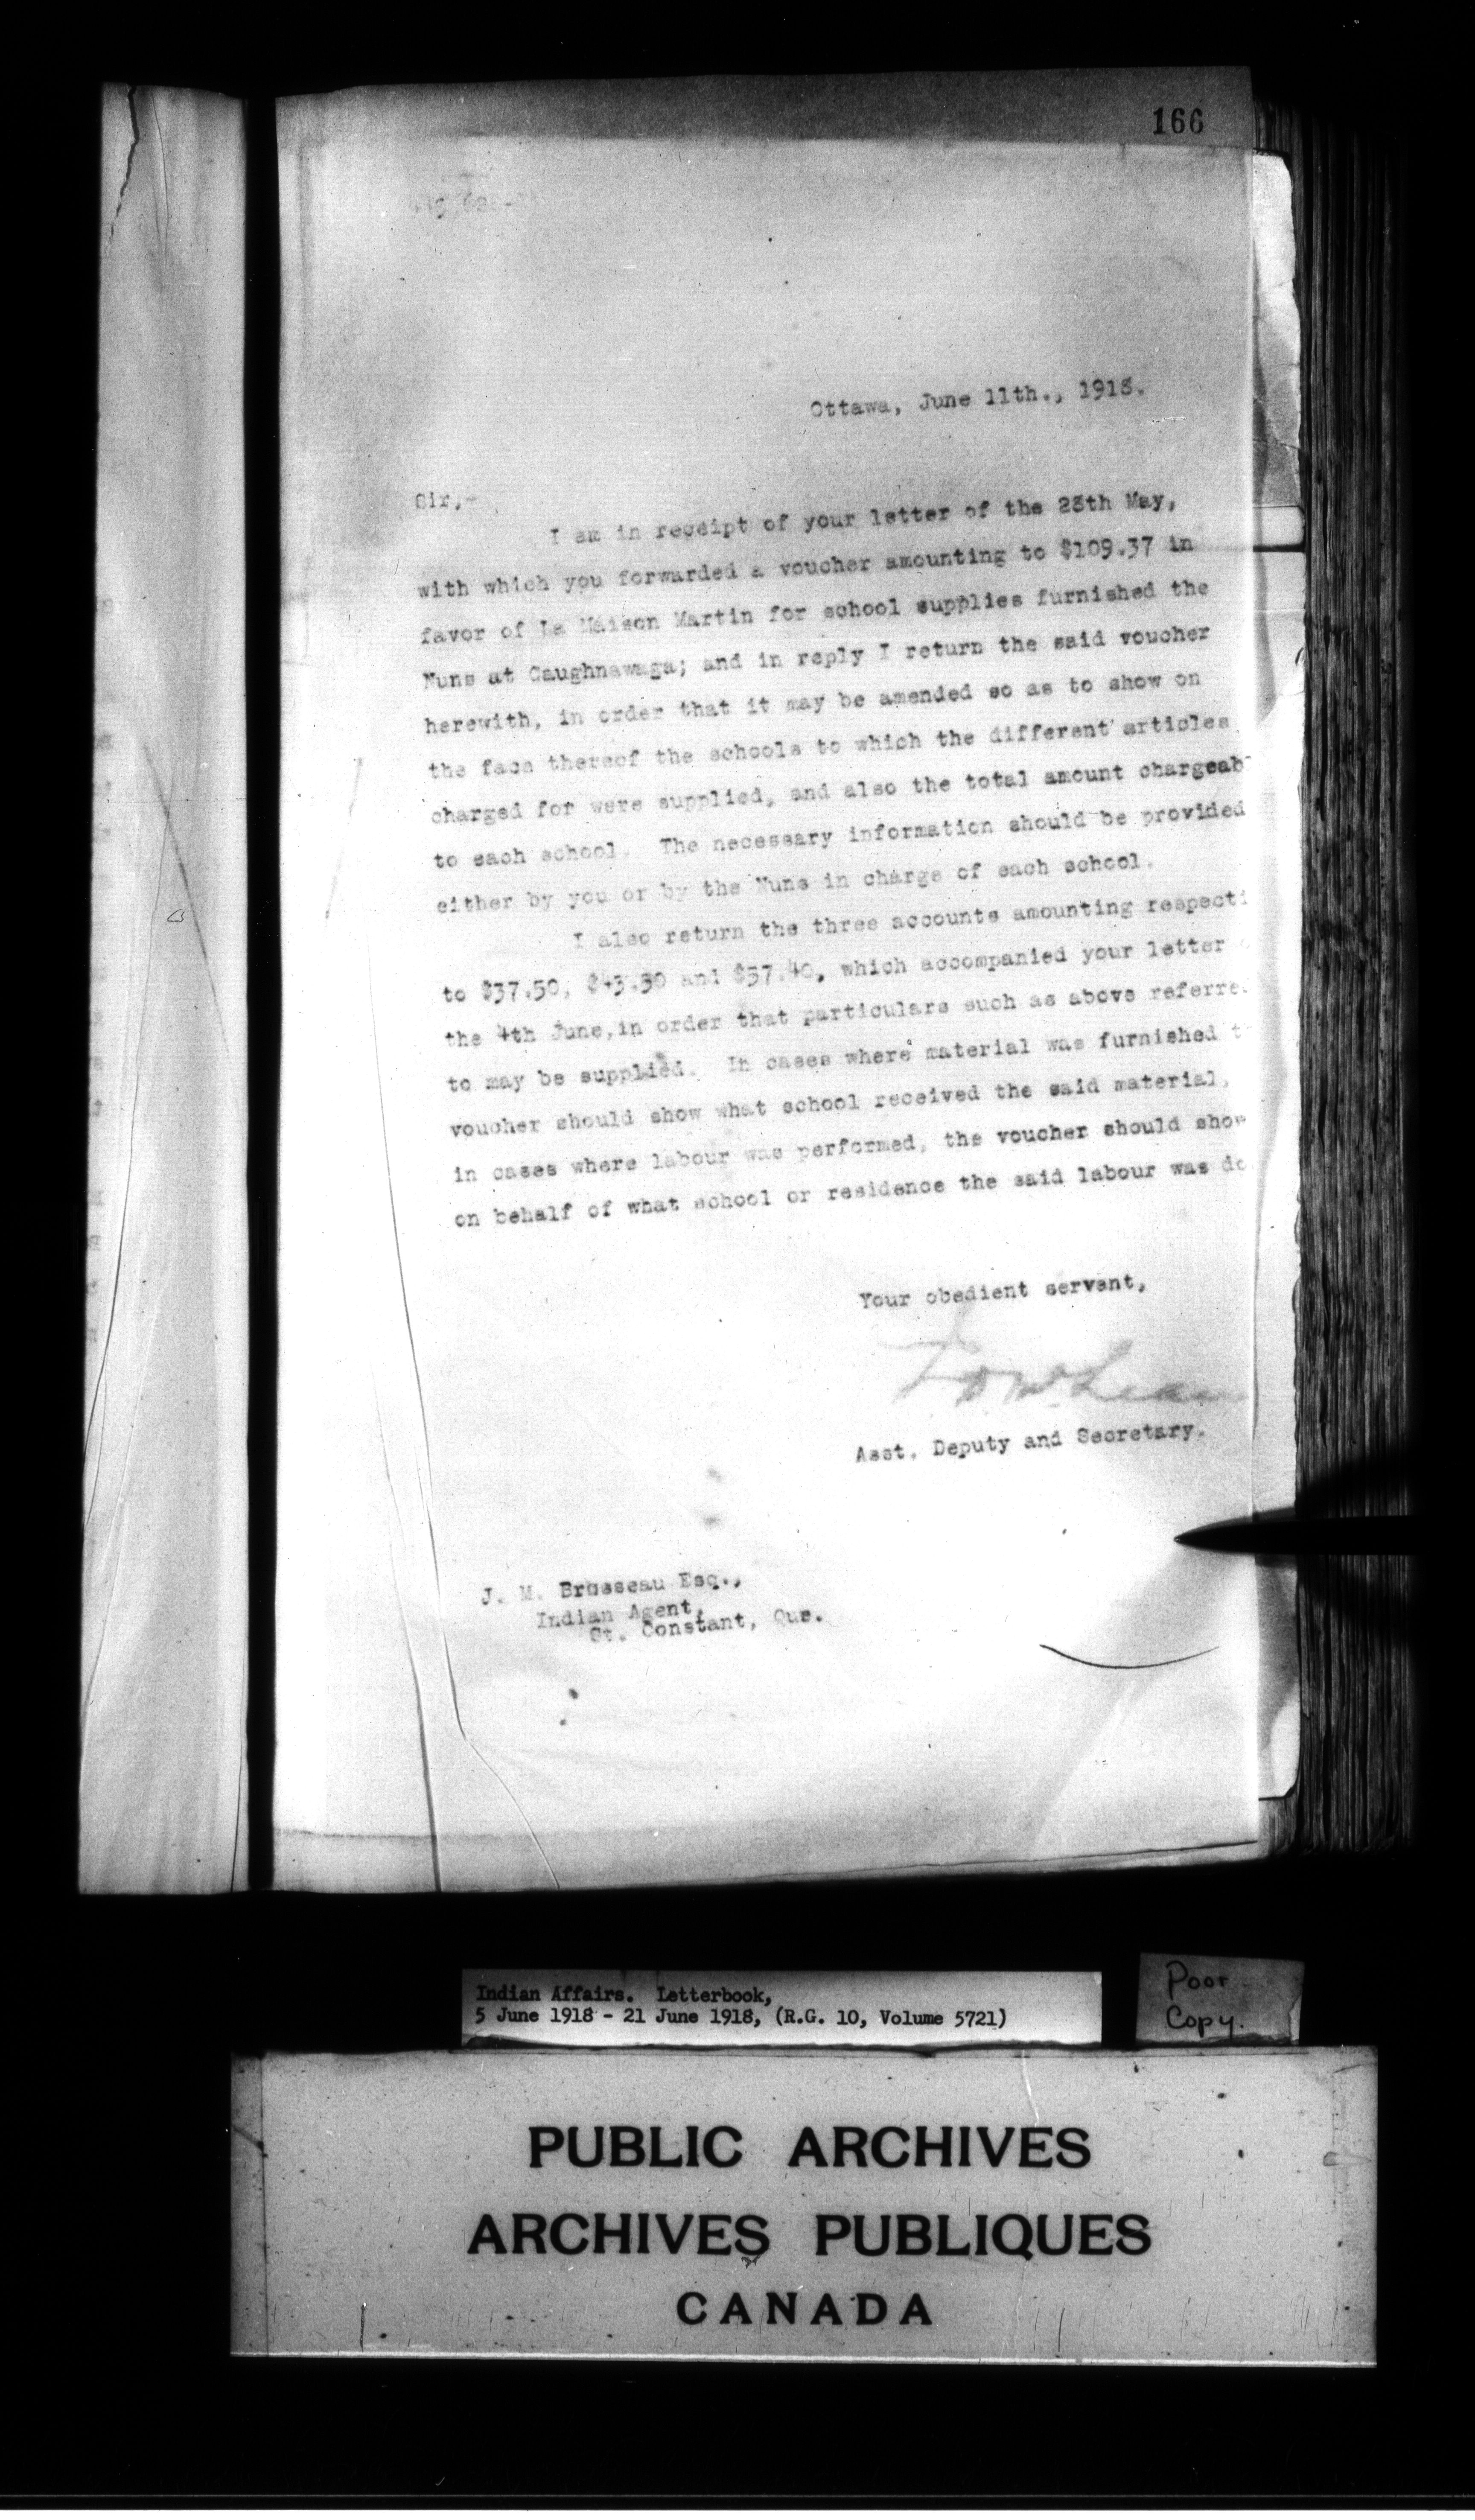 166
Ottawa, June 11th., 1918.
Sir,-
I am in receipt of your letter of the 28th May,
with which you forwarded a voucher amounting to $109.37 in
favor of La Maison Martin for school supplies furnished the
Nuns at Caughnawaga; and in reply I return the said voucher
herewith, in order that it may be amended so as to show on
the face thereof the schools to which the different articles
charged for were supplied, and also the total amount chargeab
to each school. The necessary information should be provided
either by you or by the Nuns in charge of each school.
I also return the three accounts amounting respecti
to $37.50, and which accompanied your letter
the 4th June, in order that particulars such as above referre
to may be supplied. In cases where material was furnished t
voucher should show what school received the said material,
in cases where labour was performed, the voucher should show
on behalf of what school or residence the said labour was do
Your obedient servant,
Asst. Deputy and Secretary.
J. M. Brosseau Esq.,
Indian Agent,
St. Constant, Que.
Indian Affairs. Letterbook,
5 June 1918 - 21 June 1918, (R.G. 10, Volume 5721)
Poor
Copy.
PUBLIC ARCHIVES
ARCHIVES PUBLIQUES
CANADA